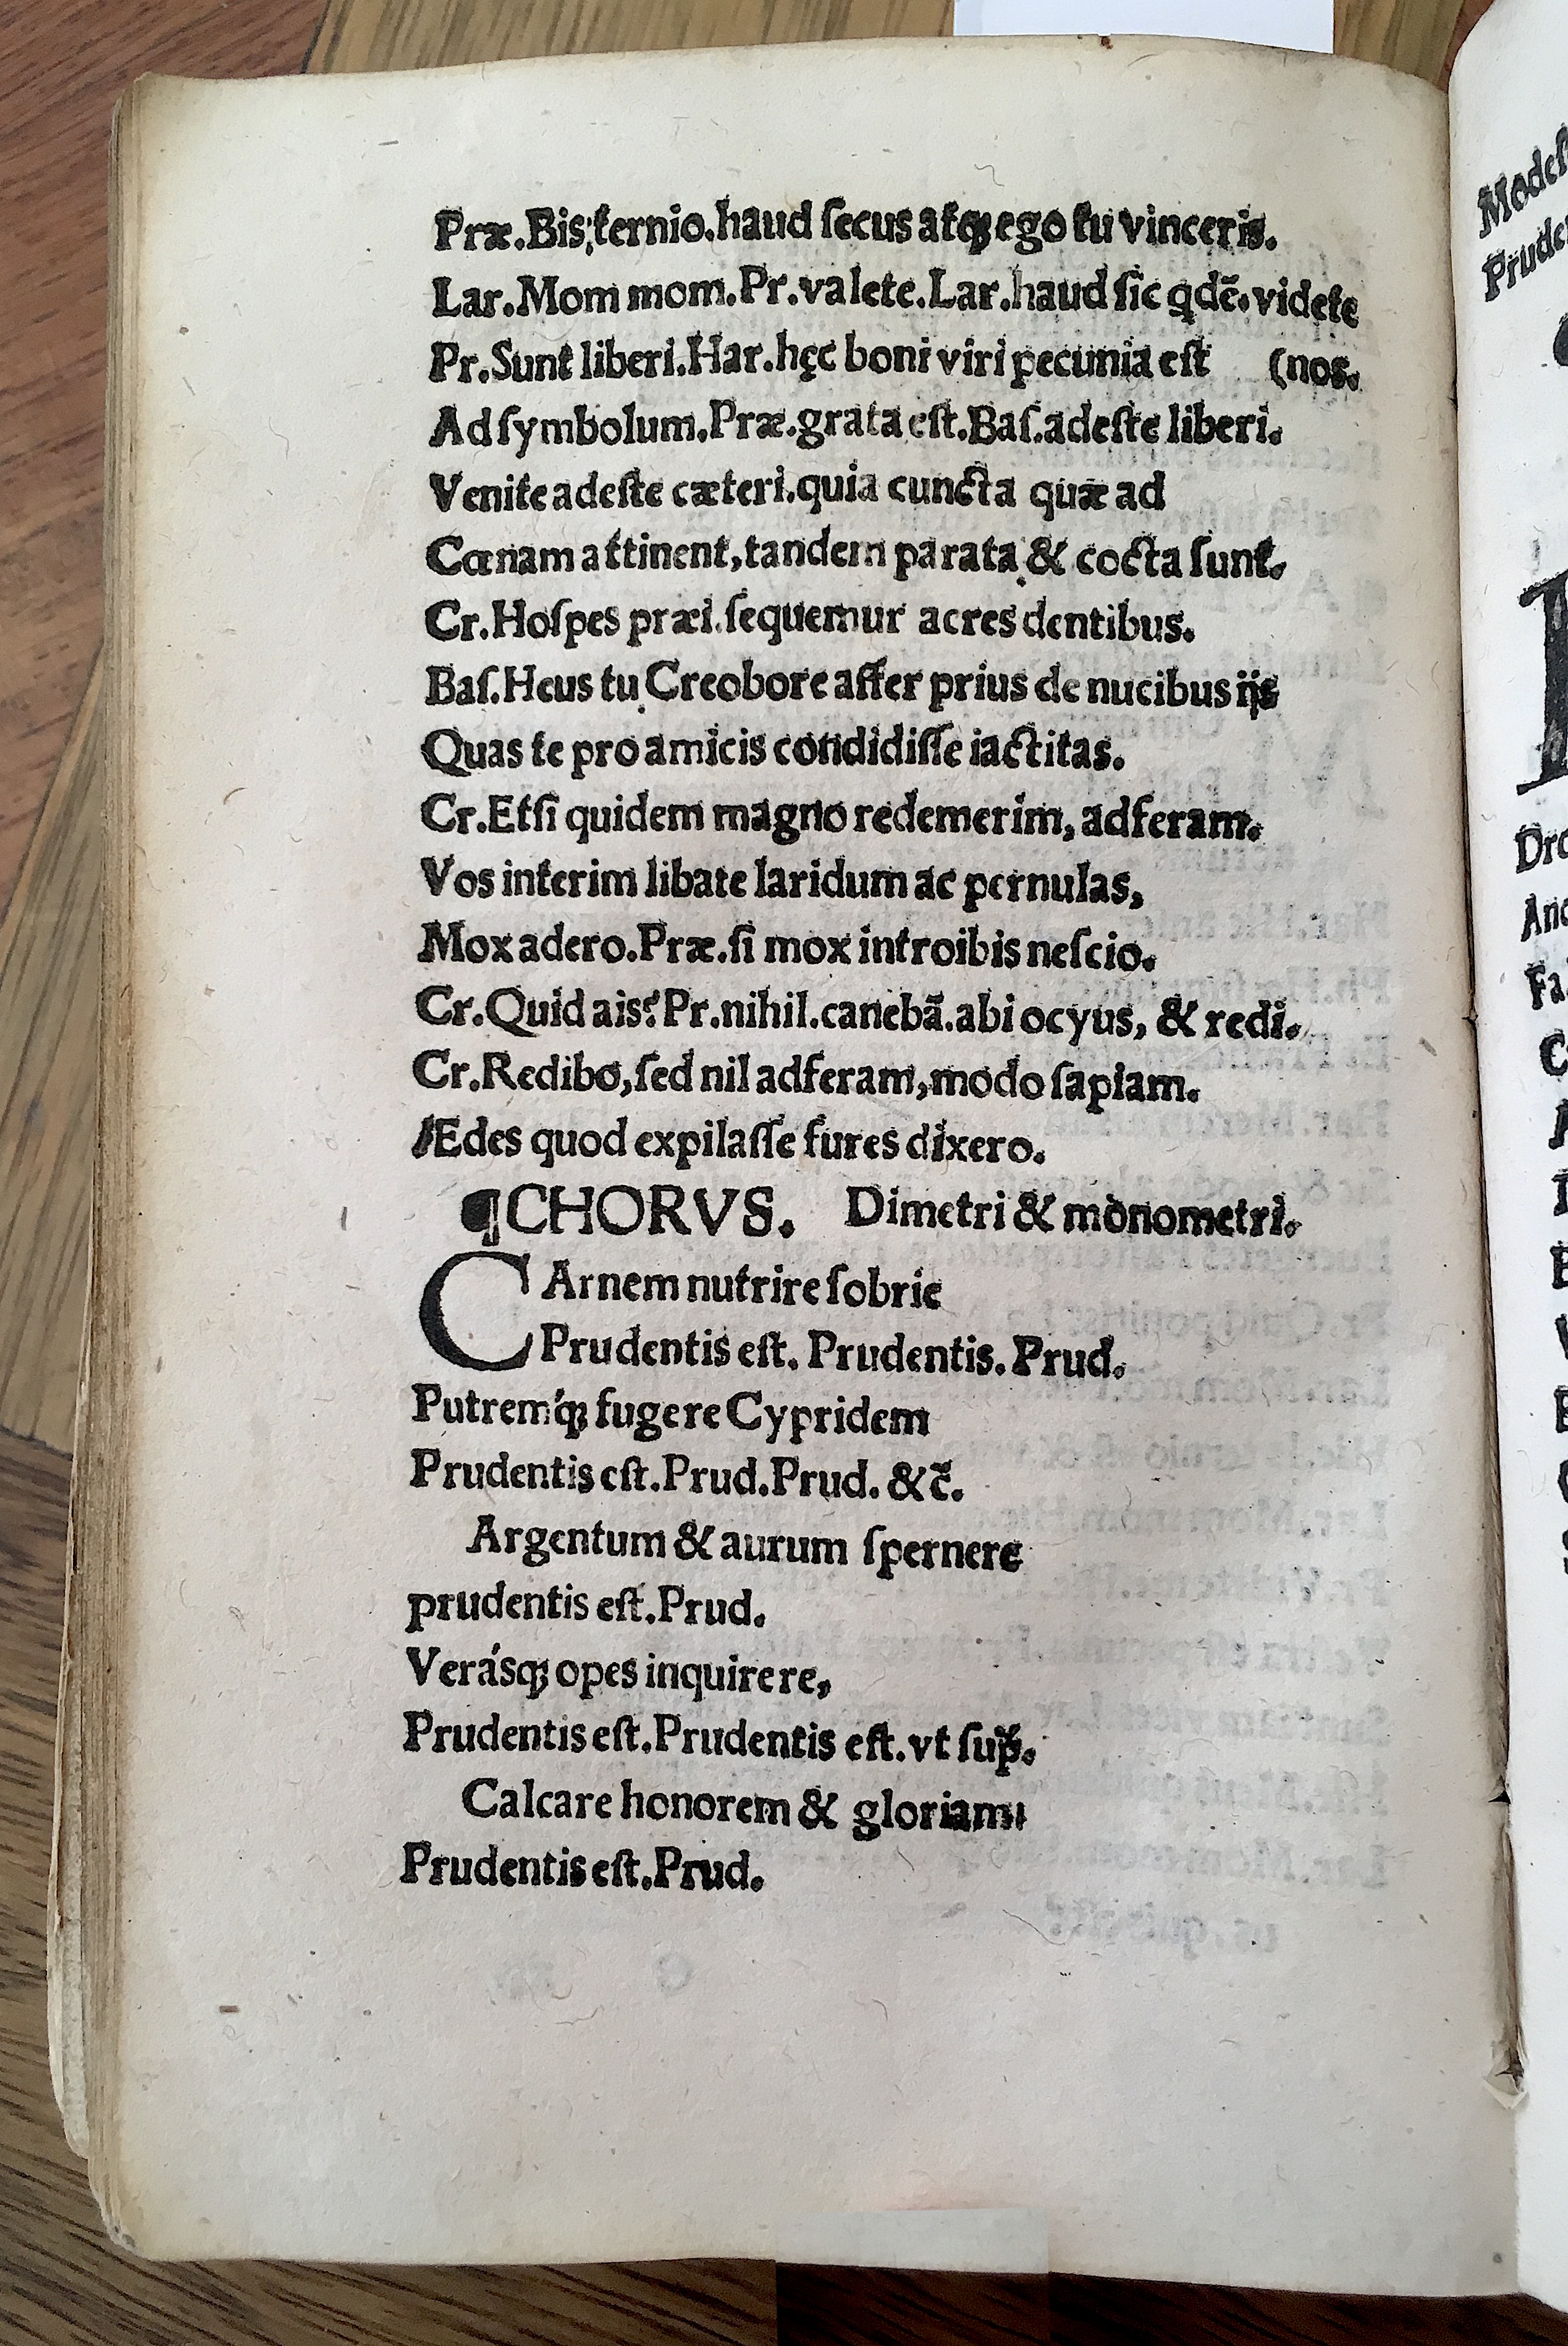 Præ.Bis;ternio.haud ſecus atqꝫ ego tu vinceris.
Lar.Mom mom.Pr.valete.Lar.haud ſic qdẽ.videte
Pr.Sunt liberi.Har.hęc boni viri pecunia eſt (nos.
Ad ſymbolum.Præ.grata eſt.Baſ.adeſte liberi.
Venite adeſte cæteri.quia cuncta quæ ad
Cœnam attinent,tandem parata & cocta ſunt.
Cr.Hoſpes præi.ſequemur acres dentibus.
Baſ.Heus tu Creobore affer prius de nucibus iis
Quas te pro amicis condidiſſe iactitas.
Cr.Etſi quidem magno redemerim, adferam.
Vos interim libate laridum ac pernulas,
Mox adero.Præ.ſi mox introibis neſcio.
Cr.Quid ais?Pr.nihil.canebã.abi ocyus, & redi.
Cr.Redibo,ſed nil adferam,modo ſapiam.
Ædes quod expilaſſe fures dixero.
¶CHORVS. Dimetri & monometri.
CArnem nutrire ſobrie
Prudentis eſt. Prudentis. Prud.
Putremq́ꝫ fugere Cypridem
Prudentis eſt.Prud.Prud. &c̃.
Argentum & aurum ſpernere
prudentis eſt.Prud.
Verásqꝫ opes inquirere,
Prudentis eſt.Prudentis eſt.vt ſup̃.
Calcare honorem & gloriam
Prudentis eſt.Prud.
Modeſ
Prude
Fa